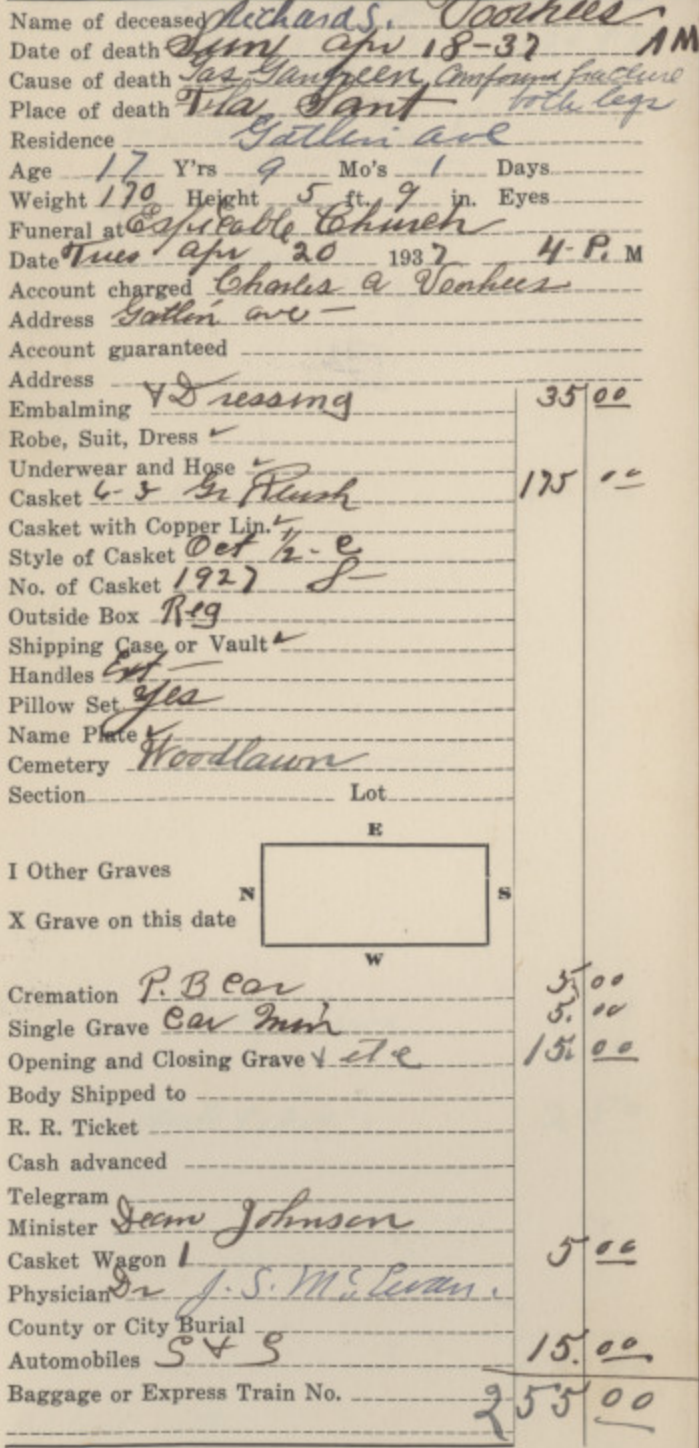 Name of deceased Richard S. Voorhees
Date of death Sun Apr 18-37 AM
Cause of death Gas Gangreen Compound fracture
both legs
Place of death Fla Sant
Residence Gatlin ave
Age 17 Y'rs 9 Mo's 1 Days
Weight 170 Height 5 ft. 9 in. Eyes
Funeral at Espicable Church
Date Tues Apr 20 1937 4-P. M
Account charged Charles A Voorhees
Address Gatlin ave —
Account guaranteed
Address
Embalming & Dressing 35 00
Robe, Suit, Dress ✓
Underwear and Hose ✓
Casket 6-3 Gr Plush 175 00
Casket with Copper Lin. ✓
Style of Casket Oct 1/2 - C
No. of Casket 1927
Outside Box Reg
Shipping Case or Vault ✓
Handles Ext —
Pillow Set Yes
Name Plate ✓
Cemetery Woodlawn
Section Lot
E
I Other Graves
N S
X Grave on this date
W
Cremation P. B Car 5.00
Single Grave Car Min 5.00
Opening and Closing Grave & etc 15.00
Body Shipped to
R. R. Ticket
Cash advanced
Telegram
Minister Dean Johnson
Casket Wagon 1 5 00
Physician Dr J. S. McEwan.
County or City Burial
Automobiles S & S 15.00
Baggage or Express Train No. 255 00